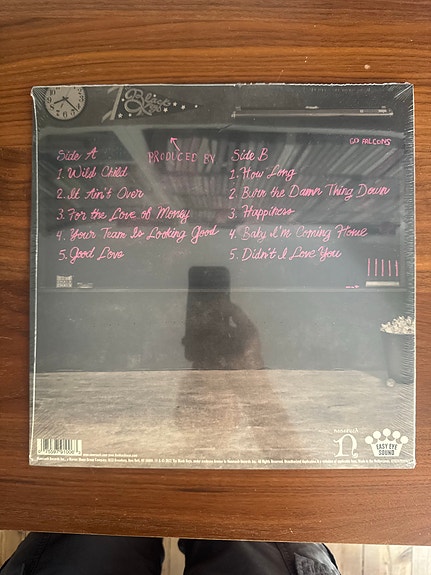 Black
Keys
GO FALCONS
PRODUCED BY
Side A
1. Wild Child
2. It Ain't Over
3. For the Love of Money
4. Your Team Is Looking Good
5. Good Love
Side B
1. How Long
2. Burn the Damn Thing Down
3. Happiness
4. Baby I'm Coming Home
5. Didn't I Love You
nonesuch
n
EASY EYE
SOUND